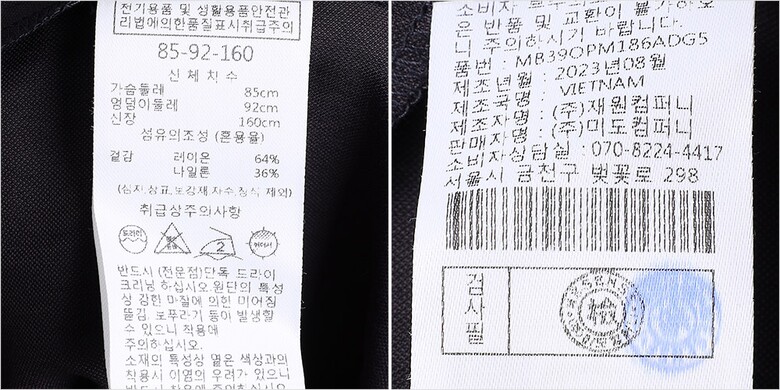 전기용품 및 생활용품안전관
리법에의한품질표시취급주의
85-92-160
신체치수
가슴둘레 85cm
엉덩이둘레 92cm
신장 160cm
섬유의조성 (혼용율)
겉감 레이온 64%
나일론 36%
(심지,상표,보강재,자수,장식 제외)
취급상주의사항
드라이
2
반드시 (전문점)단독 드라이
크리닝 하십시오.원단의 특성
상 강한 마찰에 의한 미어짐
뜯김, 보푸라기 등이 발생할
수 있으니 착용에
주의하십시오.
소재의 특성상 옅은 색상과의
착용시 이염의 우려가 있으니
소비자
은 반품 및 교환이 불가하오
니 주의하시기 바랍니다.
품번 : MB39OPM186ADG5
제조년월 : 2023년08월
제조국명 : VIETNAM
제조자명 : (주)재원컴퍼니
판매자명 : (주)미도컴퍼니
소비자상담실 : 070-8224-4417
서울시 금천구 벚꽃로 298
검사필
檢